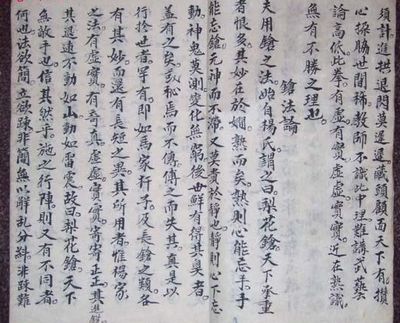 須計進拱退閃莫遲遲藏頭顧面天下有攢
心探膓世間稀教師不識此中理難講武藝
論高低此拳有虛有實虛虛實實近在熟識
無有不勝之理也
鎗法論
夫用鎗之法始自楊氏謂之曰梨花鎗天下盛重
者恨多其妙在於嫺熟而矣熟則心能忘手手
能忘鎗元神而不滯又莫貴於靜也靜則心下忘
動神鬼莫測變化無窮後世鮮有得其奥者
盖有之矣或秘焉而不傳傳之而失其真是以
行於世者罕有即如馬家杆子及長鎗之類各
有其妙而還有長短之異其所用者惟楊家
之法有虛實有奇真虛虛實實奇奇正正其進銳
其退速不動如山動如雷震故曰梨花鎗天下
無敵手也信其然乎施之行陣則又有不同者
何也法欲簡立欲疎非簡無以解亂分糾非疎難